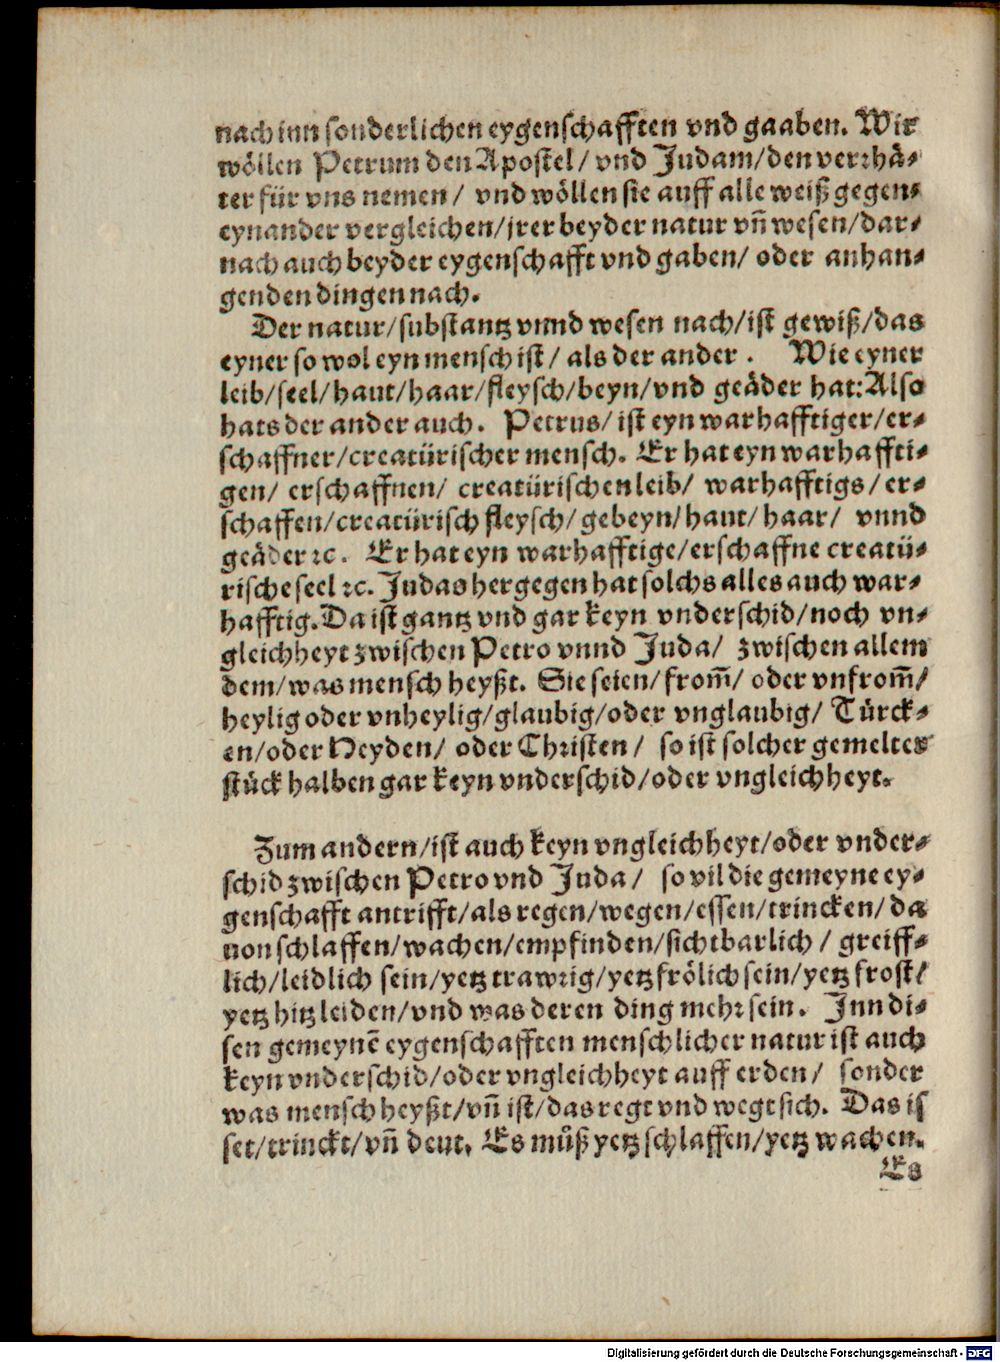 nach inn sonderlichen eygenschafften vnd gaaben. Wir
wöllen Petrum den Apostel/ vnd Judam/den verrhä⸗
ter für vns nemen/ vnd wöllen sie auff alle weiß gegen⸗
eynander vergleichen/jrer beyder natur vñ wesen/dar⸗
nach auch beyder eygenschafft vnd gaben/ oder anhan⸗
genden dingen nach.
Der natur/substantz vnnd wesen nach/ist gewiß/das
eyner so wol eyn mensch ist/ als der ander. Wie eyner
leib/seel/haut/haar/fleysch/beyn/vnd geäder hat:Also
hats der ander auch. Petrus/ ist eyn warhafftiger/er⸗
schaffner/creatürischer mensch. Er hat eyn warhaffti⸗
gen/ erschaffnen/ creatürischen leib/ warhafftigs/er⸗
schaffen/creatürisch fleysch/gebeyn/haut/haar/ vnnd
geäder ꝛc. Er hat eyn warhafftige/erschaffne creatü⸗
rische seel ꝛc. Judas hergegen hat solchs alles auch war⸗
hafftig. Da ist gantz vnd gar keyn vnderschid/noch vn⸗
gleichheyt zwischen Petro vnnd Juda/ zwischen allem
dem/was mensch heyßt. Sie seien/from̃/ oder vnfrom̃/
heylig oder vnheylig/glaubig/oder vnglaubig/ Türck⸗
en/oder Heyden/ oder Christen/ so ist solcher gemelter
stück halben gar keyn vnderschid/oder vngleichheyt.
Zum andern/ist auch keyn vngleichheyt/oder vnder⸗
schid zwischen Petro vnd Juda/ so vil die gemeyne ey⸗
genschafft antrifft/als regen/wegen/essen/trincken/da
uon schlaffen/wachen/empfinden/sichtbarlich/ greiff⸗
lich/leidlich sein/yetz trawrig/yetz frölich sein/yetz frost/
yetz hitz leiden/vnd was deren ding mehr sein. Inn di⸗
sen gemeynẽ eygenschafften menschlicher natur ist auch
keyn vnderschid/oder vngleichheyt auff erden/ sonder
was mensch heyßt/vñ ist/das regt vnd wegt sich. Das is
set/trinckt/vñ deut. Es můß yetz schlaffen/yetz wachen.
Es
Digitalisierung gefördert durch die Deutsche Forschungsgemeinschaft - DFG